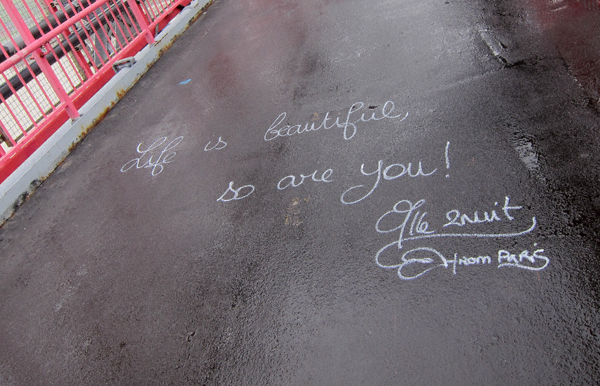 Life is beautiful,
so are you!
from PARIS